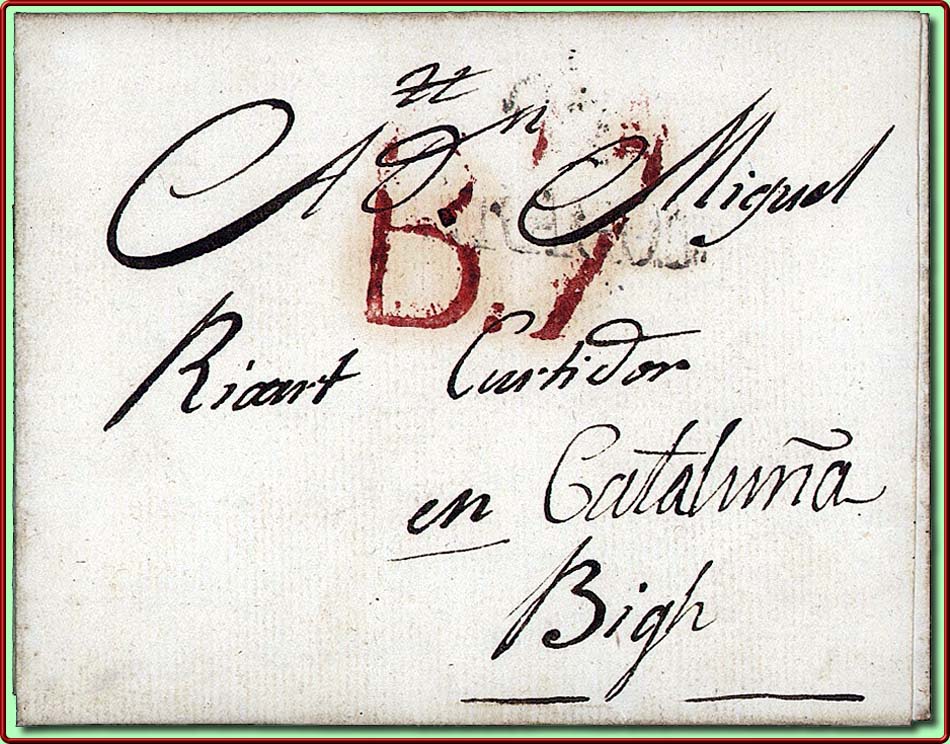 A Dⁿ Miguel
B.7
Ricart Curtidor
en Cataluña
Bigh